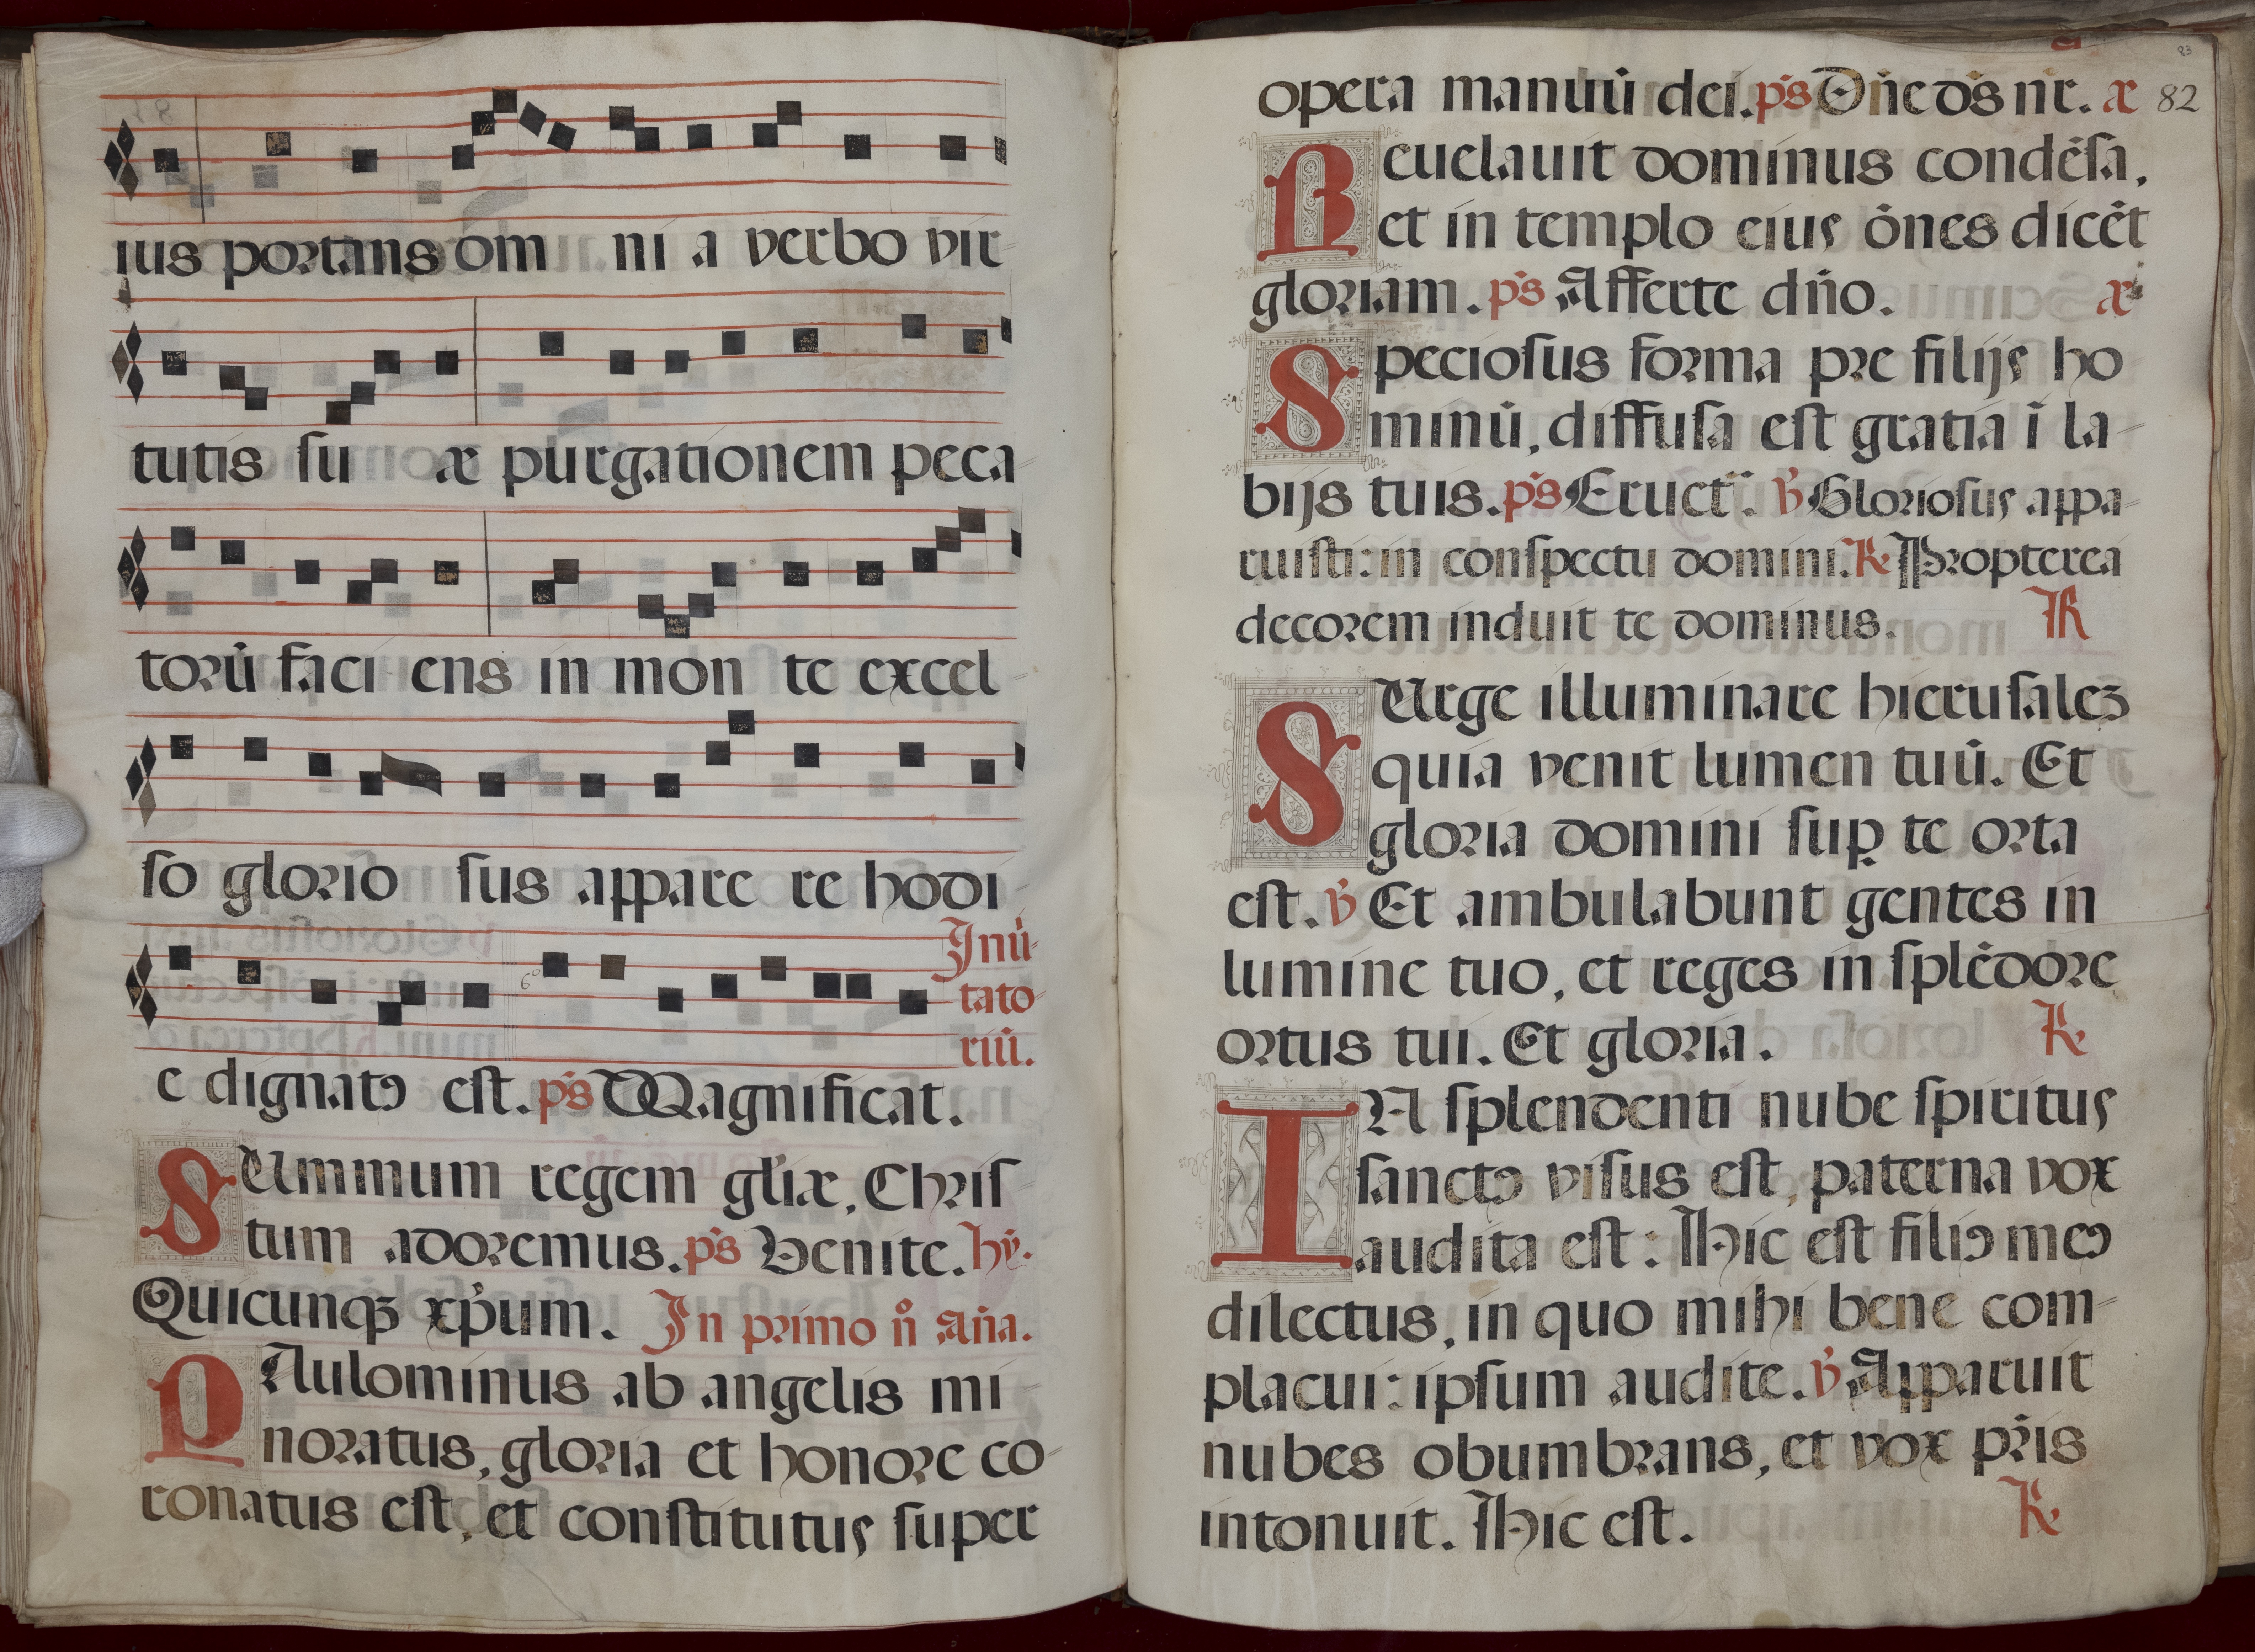 ius portans om ni a verbo vir-
tutis su æ purgationem peca-
torū faci ens in mon te excel-
so glorio sus appare re hodi-
Inui-
tato-
riū.
e dignatꝰ est. p̄s Magnificat.
SUmmum regem gl̄iæ, Chris
tum adoremus. p̄s Venite. hy̅.
Quicunqꝫ xp̄um. In primo n̊ An̄a.
PAulominus ab angelis mi
noratus, gloria et honore co-
ronatus est, et constitutus super
83
82
opera manuū dei. p̄s Dn̄e ds̄ nr̄. a
Reuelauit dominus condēsa,
et in templo eius ōnes dicēt
gloriam. p̄s Afferte dn̄o. a
Speciosus forma pre filijs ho
minū, diffusa est gratia ī la-
bijs tuis. p̄s Eruct̄. ℣ Gloriosus appa-
ruisti: in conspectu domini. ℟ Propterea
decorem induit te dominus. ℟
SUrge illuminare hierusaleꝫ
quia venit lumen tuū. Et
gloria domini suꝑ te orta
est. ℣ Et ambulabunt gentes in
lumine tuo, et reges in splēdore
ortus tui. Et gloria. ℟
IN splendenti nube spiritus
sanctꝰ visus est, paterna vox
audita est: Hic est filiꝰ meꝰ
dilectus, in quo mihi bene com-
placui: ipsum audite. ℣ Apparuit
nubes obumbrans, et vox pr̄is
intonuit. Hic est. ℟